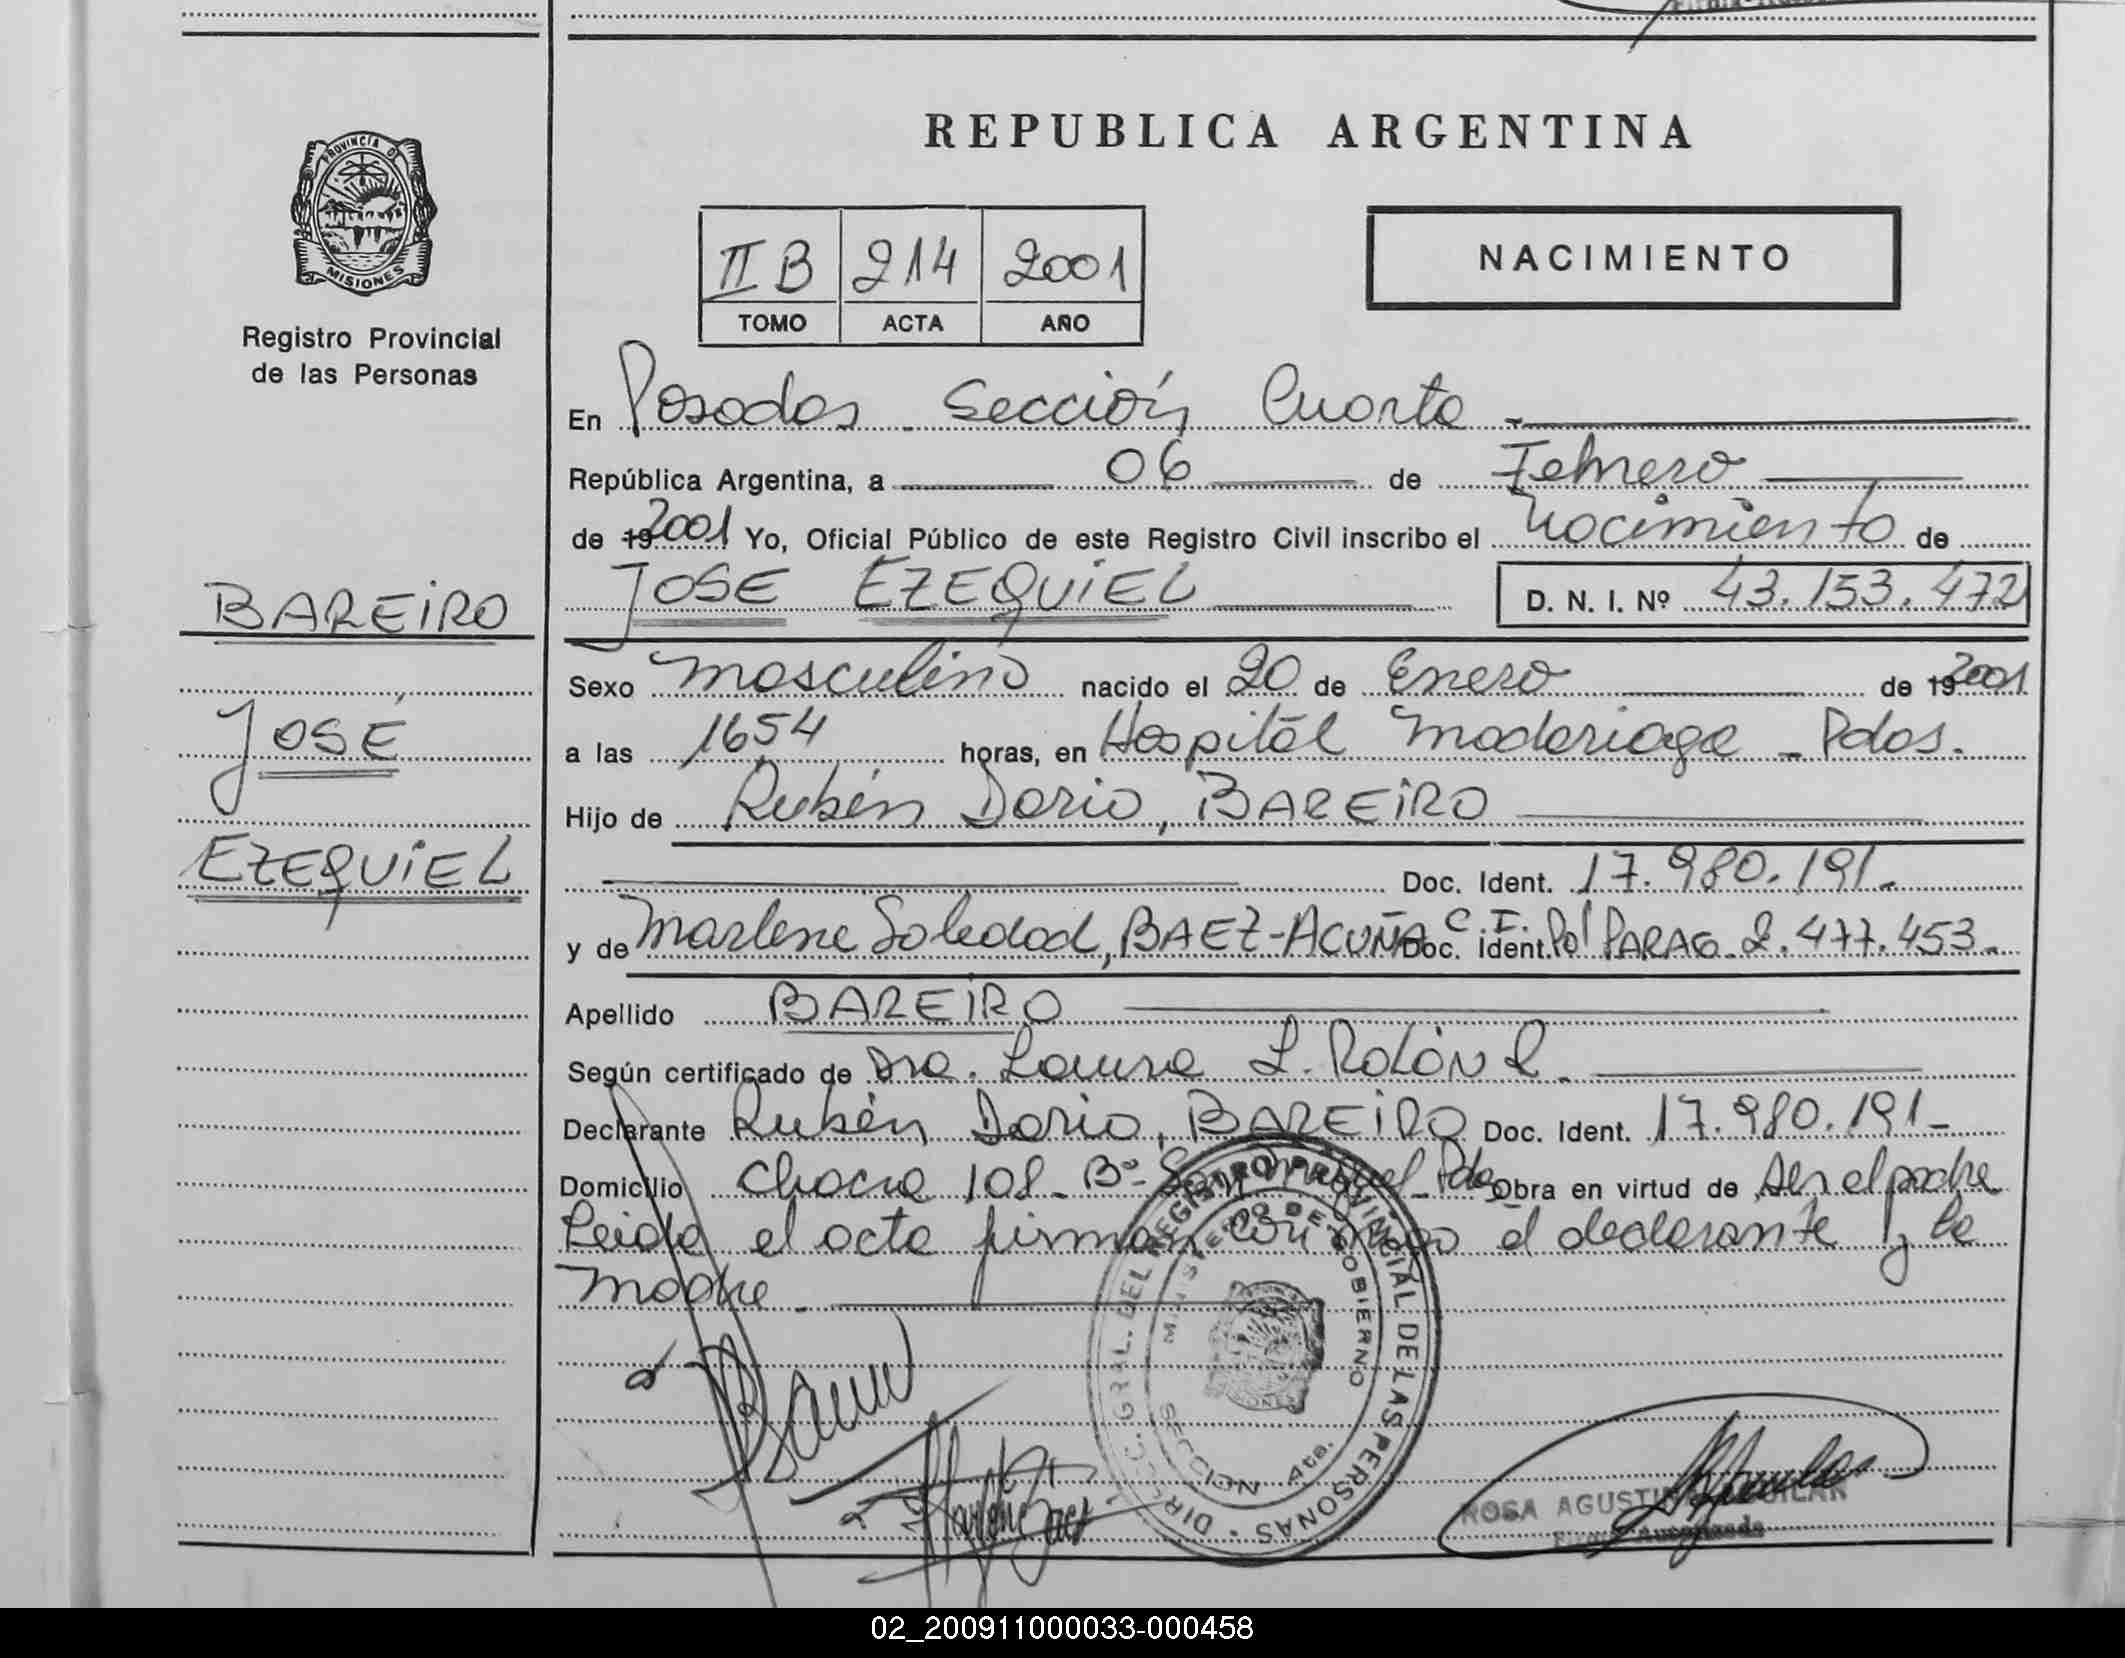 REPUBLICA ARGENTINA
PROVINCIA DE
MISIONES
Registro Provincial
de las Personas
II B 214 2001
TOMO ACTA AÑO
NACIMIENTO
En Posadas - Sección Cuarta -
República Argentina, a 06 de Febrero
de 19 2001 Yo, Oficial Público de este Registro Civil inscribo el Nacimiento de
JOSE EZEQUIEL D. N. I. Nº 43.153.472
BAREIRO
JOSÉ
EZEQUIEL
Sexo masculino nacido el 20 de Enero de 19 2001
a las 1654 horas, en Hospital Madariaga - Pdas.
Hijo de Rubén Dario, BAREIRO
Doc. Ident. 17.980.191.
y de Marlene Soledad, BAEZ-ACUÑA Doc. Ident. C. I. Pol PARAG. 2.477.453.
Apellido BAREIRO
Según certificado de Dra. Laura L. ROLÓN R.
Declarante Rubén Dario, BAREIRO Doc. Ident. 17.980.191-
Domicilio Chacra 108 - Bº San Miguel - Pdas Obra en virtud de ser el padre
Leida el acta firman conmigo el declarante y la
madre -
DIREC. GRAL. DEL REGISTRO PROVINCIAL DE LAS PERSONAS
MINISTERIO DE GOBIERNO
SECCION 4ta.
Marlene Baez
ROSA AGUSTINA AGUILAR
Firma Autorizada
02_200911000033-000458